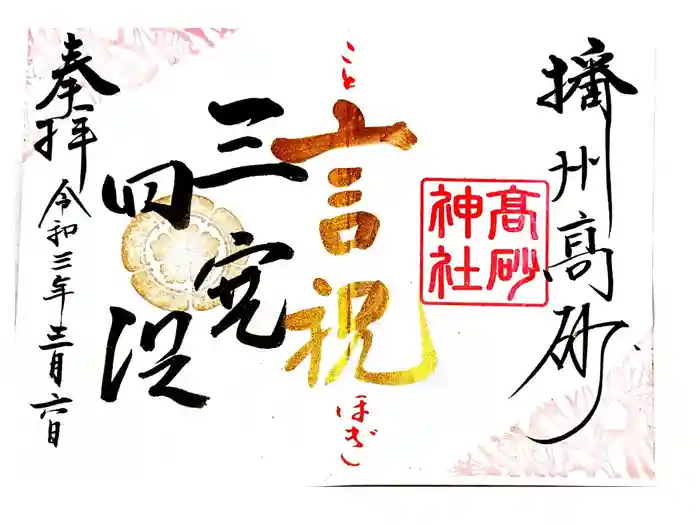 播州高砂
高砂
神社
こと
言祝
ほぎ
三
四
奉拝
令和三年十二月六日